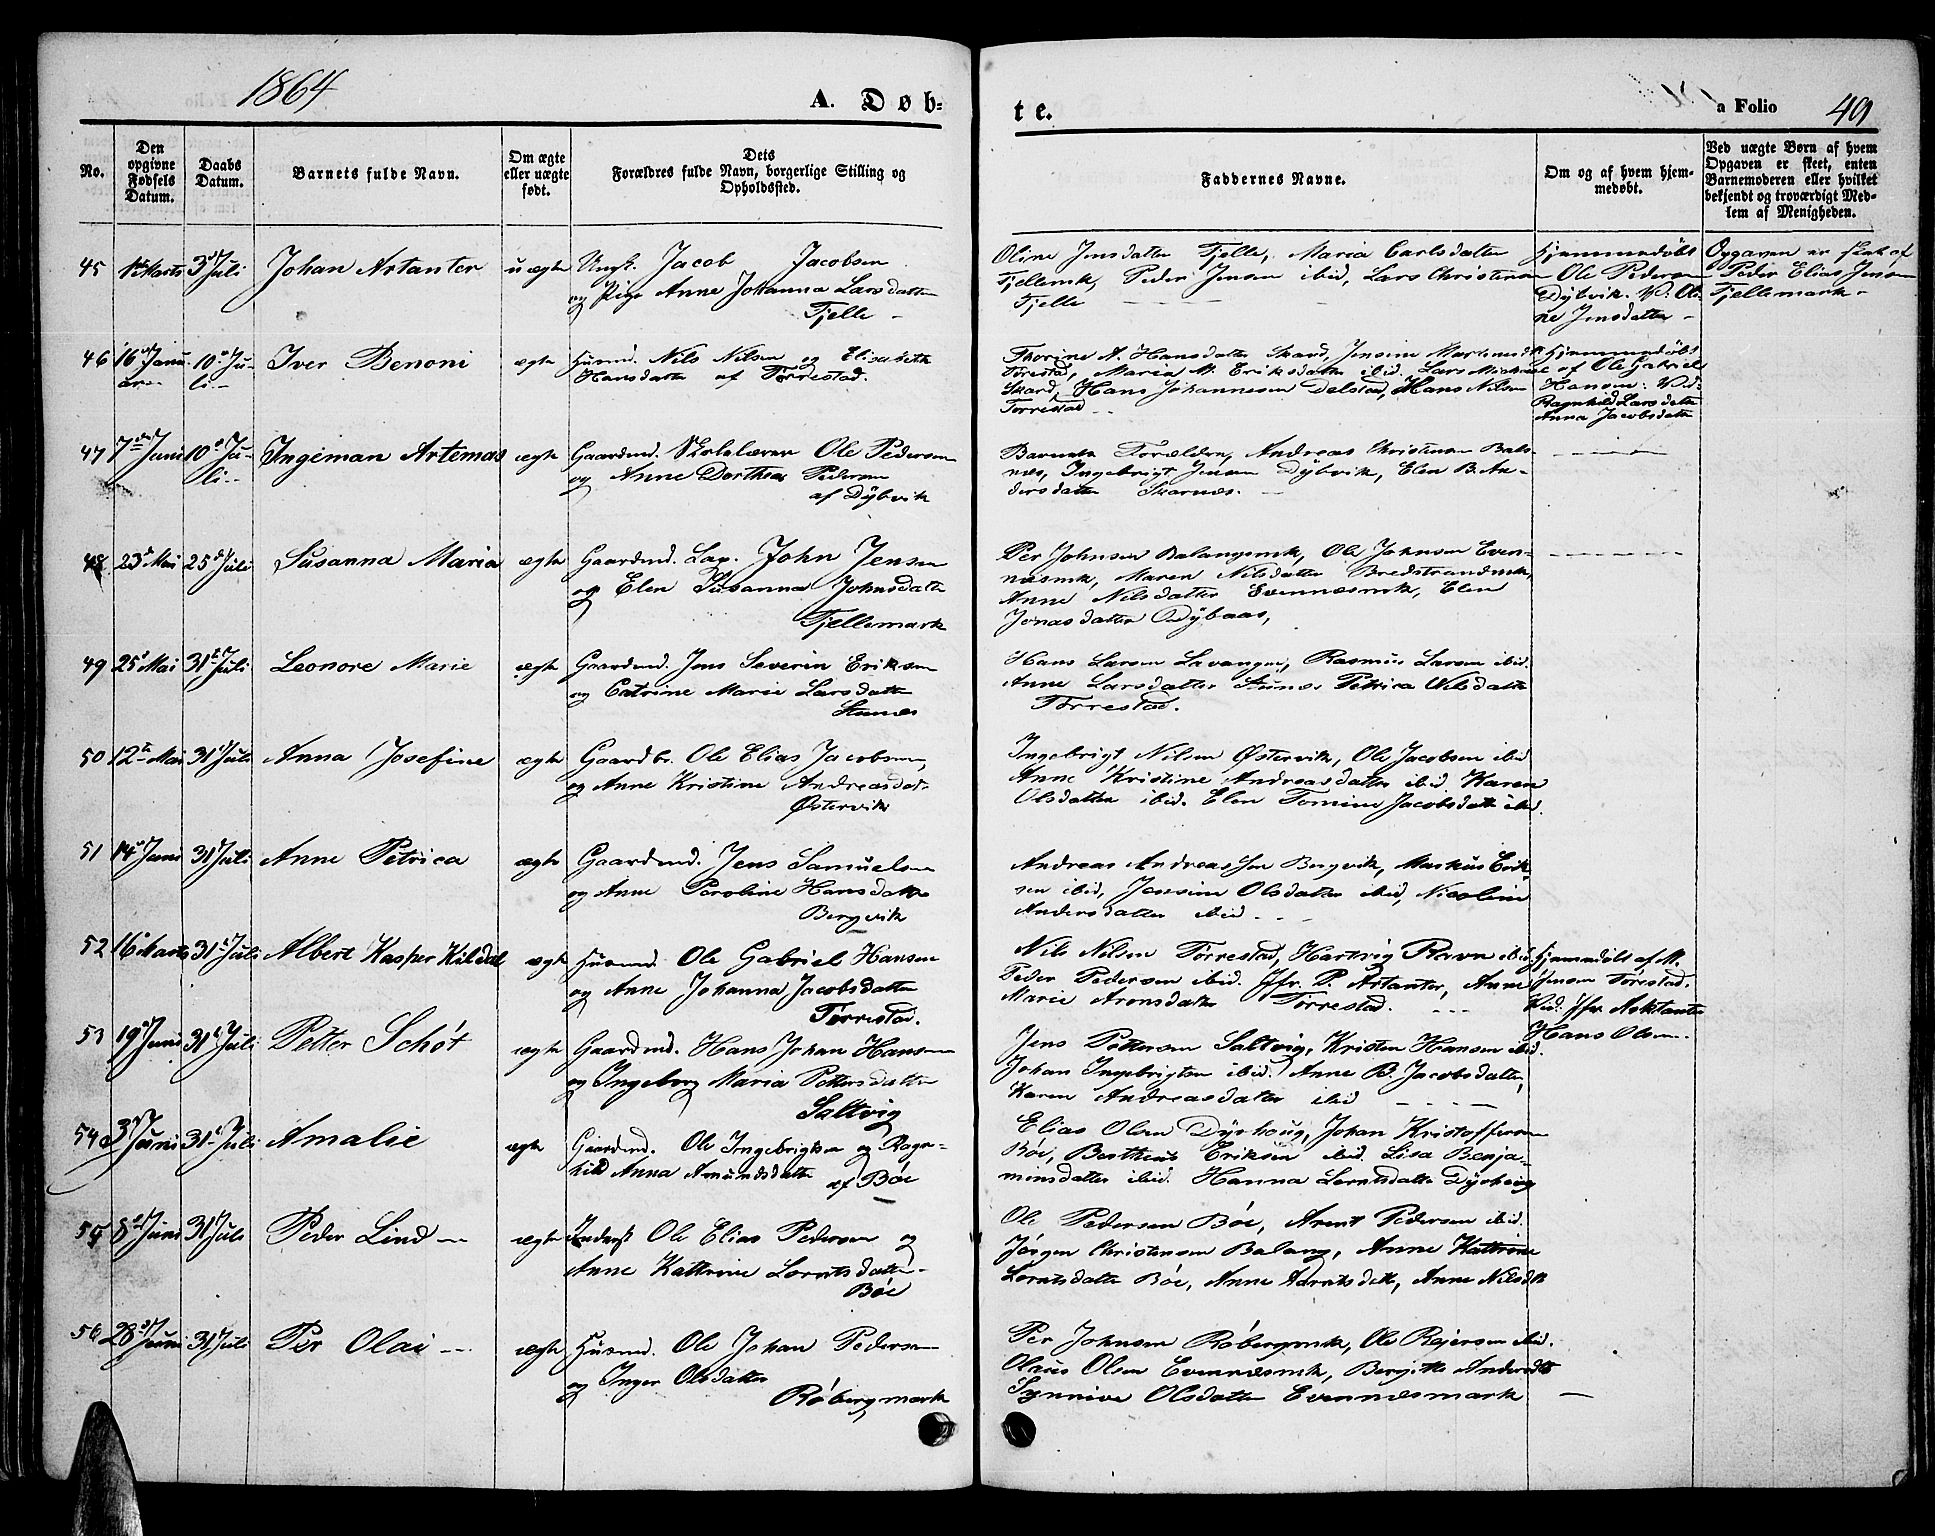 1864
A. Døb-
te.
a Folio 49
No.
Den opgivne Fødsels Datum.
Daabs Datum.
Barnets fulde Navn.
Om ægte eller uægte født.
Dets Forældres fulde Navn, borgerlige Stilling og Opholdssted.
Faddernes Navne.
Om og af hvem hjemmedøbt.
Ved uægte Børn af hvem Opgaven er skeet, enten Barnemoderen eller hvilket bekjendt og troværdigt Medlem af Menigheden.
45 1ste Marts 3d Juli Johan Artanter uægte Ungk. Jacob Jacobsen
og Pige Anne Johanna Larsdatter
Fjelle
Oline Jensdatter Fjelle, Maria Carlsdatter
Fjellemk, Peder Jensen ibid, Lars Christensen
Fjelle
Hjemmedøbt
Ole Pedersen
Dybvik. Vd: Oli-
ne Jensdatter
Opgaven er skeet af
Peder Elias Jensen
Fjellemark
46 16de Janu- 10de Ju- Iver Benoni ægte Husmd. Nils Nilsen og Elisabeth
ar li Hansdatter af Tørrestad.
Thorine A. Hansdatter Skard, Jensine Martinusd
Tørestad, Maria M. Eriksdatter ibid. Lars Mickine
Skard, Hans Johannesen Delstad, Hans Nilsen
Torrestad
Hjemmedøbt
af Ole Gabriel
Hansen: Vd:
Ragnhild Larsdatter
Anna Jacobsdatter
47 7de Juni 10de Ju- Ingeman Artemas ægte Gaardmd. Skolelærer Ole Pedersen
li og Anne Dorthea Pedersen
af Dybvik
Barnets Forældre, Andreas Christensen Bals-
næs, Ingebrigt Jensen Dybvik, Elen B. An-
dersdatter Skarnæs.
48 23d Mai 25d Juli Susanna Maria ægte Gaardmd. Lap. John Jensen
og Elen Susanna Johnsdatter
Fjellemark
Per Johnsen Balangsmk, Ole Johnsen Even-
næsmk, Maren Nilsdatter Bredstrandmk,
Anne Nilsdatter Evennæsmk, Elen
Jonasdatter Dybaas,
49 25d Mai 31te Juli Leonore Marie ægte Gaardmd. Jens Severin Eriksen
og Catrine Marie Larsdatter
Stunes
Hans Larsen Lavangen, Rasmus Larsen ibid.
Anne Larsdatter Stunes Petrica Nilsdatter
Tørrestad.
50 12te Mai 31d Juli Anna Josefine ægte Gaardbr. Ole Elias Jacobsen,
og Anne Kristine Andreasdat.
Østervik
Ingebrigt Nilsen Østervik, Ole Jacobsen ibid
Anne Kristine Andreasdatter ibid Karen
Olsdatter ibid. Elen Tomine Jacobsdatter ibid.
51 14d Juni 31 Juli Anne Petrica ægte Gaardmd. Jens Samuelsen
og Anne Peroline Hansdatter
Bergvik
Andreas Andreassen Bergvik, Markus Erik-
sen ibid, Jensine Olsdatter ibid, Nicoline
Andersdatter ibid
52 16d Marts 31te Juli Albert Kasper Kildal ægte Husmd. Ole Gabriel Hansen
og Anne Johanna Jacobsdatter
Tørrestad.
Nils Nilsen Tørrestad, Hartvig Ravn ibid.
Peder Pedersen ibid. Jfr. P. Artanter, Anne
Marie Aronsdatter Tørrestad.
Hjemmedøbt af M.
Jensen Tørestad.
Vid: Jfr Arktanter
Hans Olsen
53 19d Juni 31te Juli Petter Schøt ægte Gaardmd. Hans Johan Hansen
og Ingeborg Maria Pettersdatter
Saltvig
Jens Pettersen Saltvig, Kristen Hansen ibid.
Johan Ingebrigtsen ibid. Anne B. Jacobsdatter,
Karen Andreasdatter ibid
54 3d Juni 31te Juli Amalie ægte Gaardmd. Ole Ingebrigtsen og Ragn-
hild Anna Amundsdatter
af Bøe
Elias Olsen Dyrhaug, Johan Kristoffersen
Bøe, Bertheus Eriksen ibid. Lisa Benja-
minsdatter ibid. Hanna Lorntsdatter Dyrhaug
55 8de Juni 31 Juli Peder Lind ægte Inderst Ole Elias Pedersen og
Anne Kattrine Lorntsdatter
Bøe
Ole Pedersen Bøe, Arent Pedersen ibid.
Jørgen Christensen Balang, Anne Kattrine
Lorntsdatter Bøe, Anne Aarntsdatt, Anne Nilsdtt
56 28d Juni 31 Juli Per Olai ægte Husmd. Ole Johan Pedersen
og Inger Olsdatter
Røbergmark
Per Johnsen Røbergmk, Ole Rejersen ibid.
Olaus Olsen Evennæsmk, Bergitte Andersdtt
Synnive Olsdatter Evennæsmark